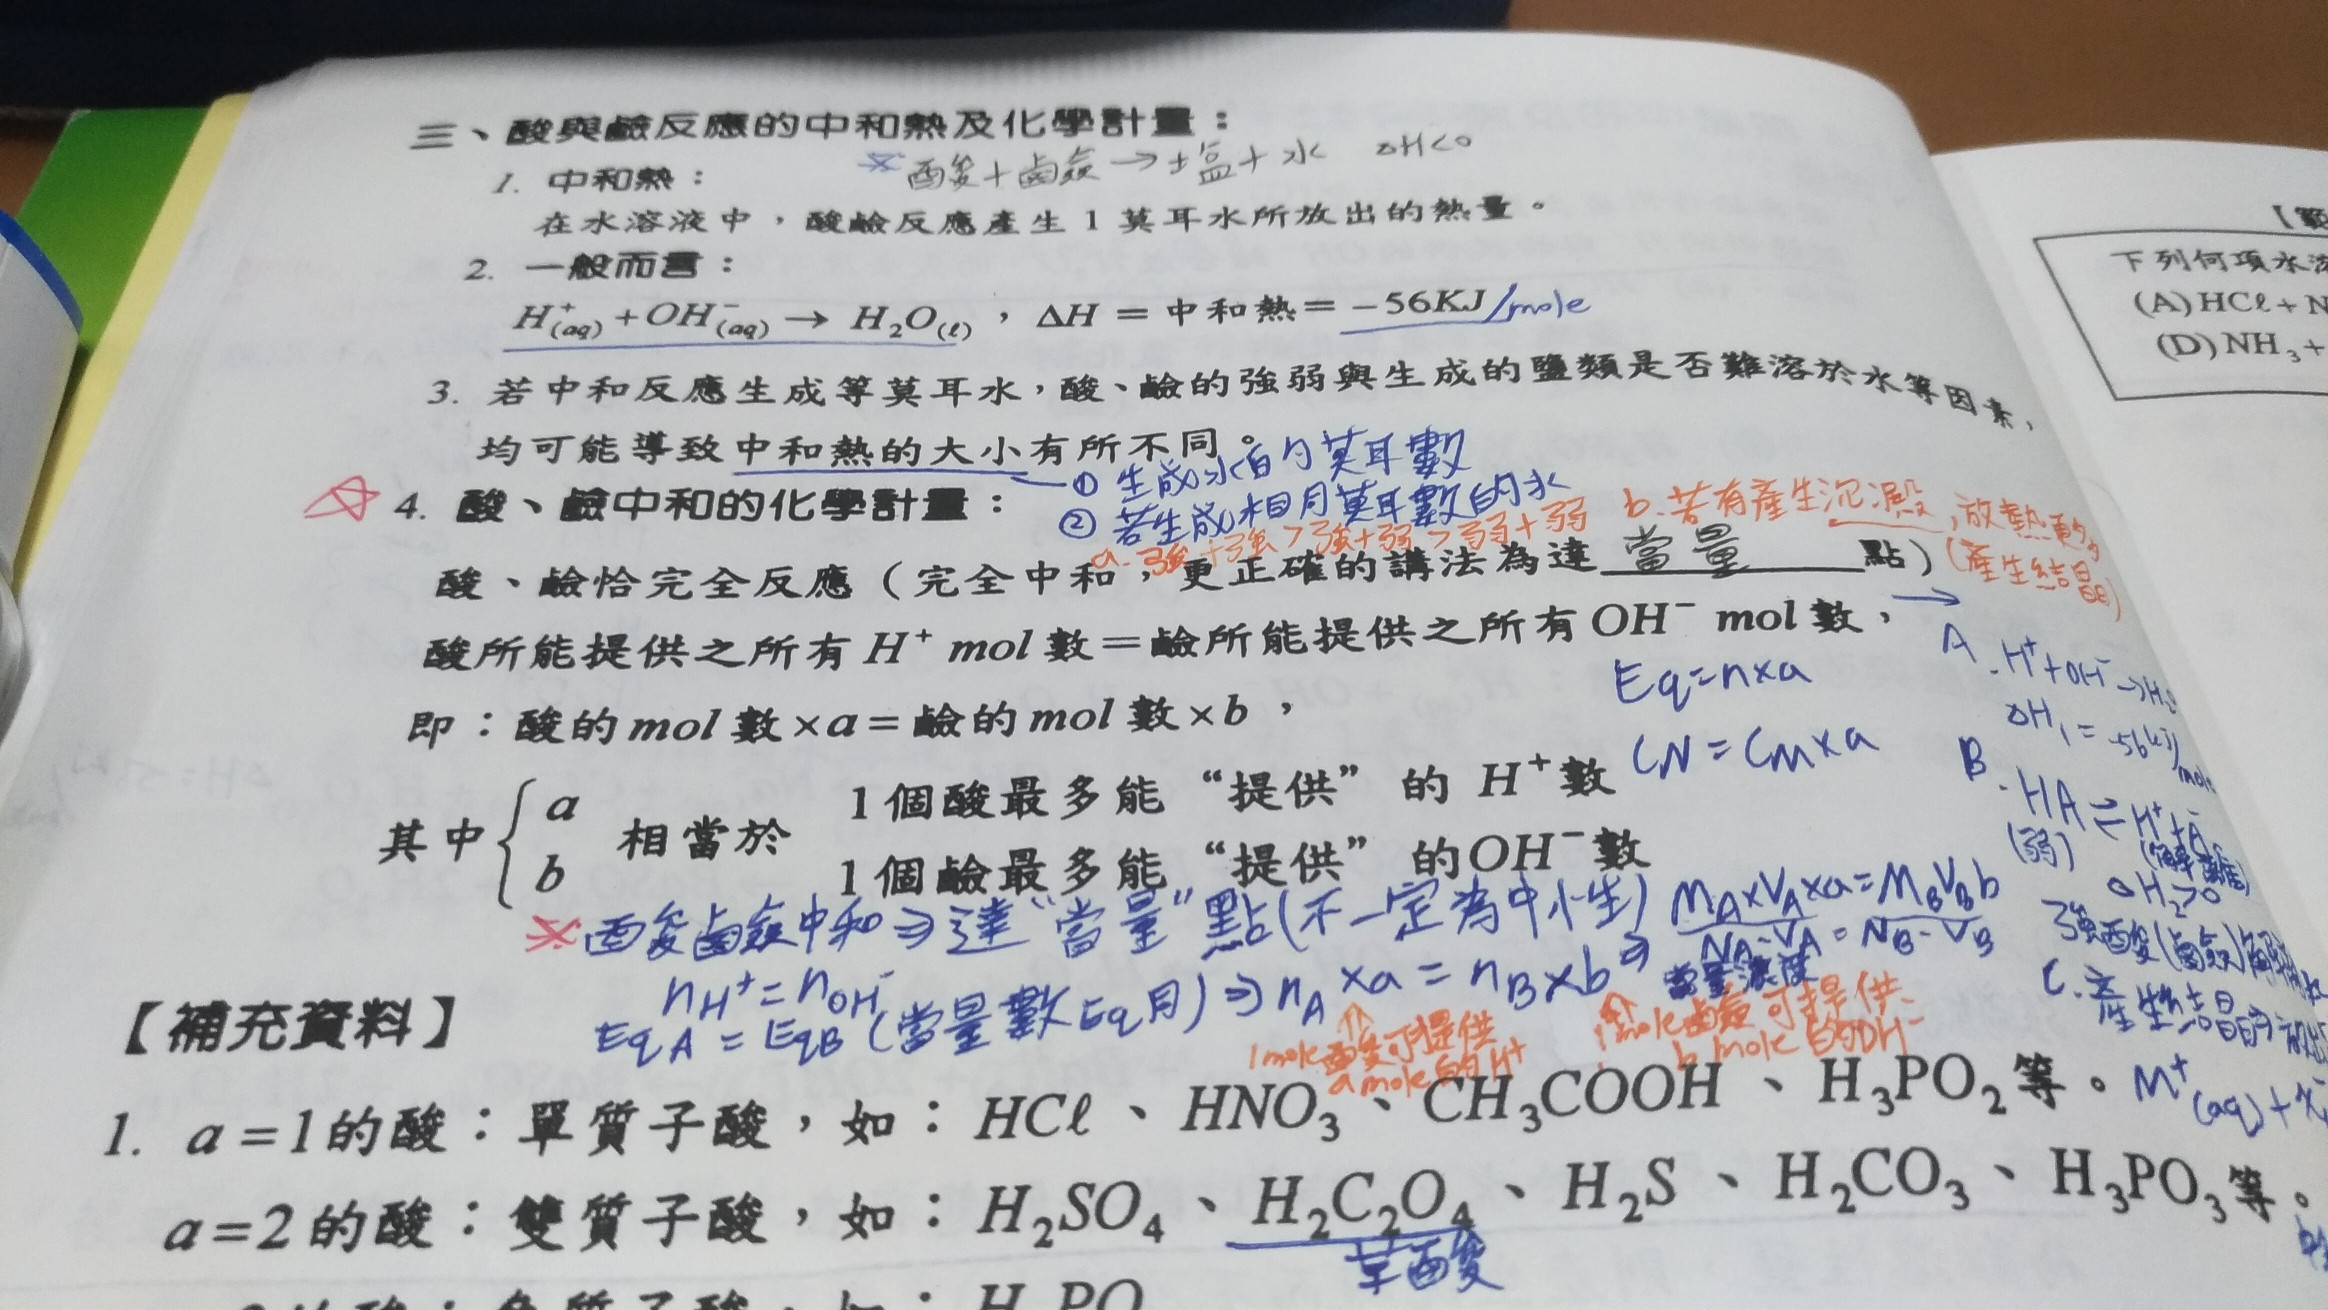 三、酸與鹼反應的中和熱及化學計量：
1. 中和熱：
※ 酸+鹼→塩+水 ΔH<0
在水溶液中，酸鹼反應產生1莫耳水所放出的熱量。
2. 一般而言：
H⁺(aq)+OH⁻(aq)→ H₂O(ℓ)，ΔH = 中和熱= −56KJ/mole
3. 若中和反應生成等莫耳水，酸、鹼的強弱與生成的鹽類是否難溶於水等因素，
均可能導致中和熱的大小有所不同。
① 生成水的莫耳數
② 若生成相同莫耳數的水
a. 強+強>強+弱>弱+弱 b. 若有產生沉澱，放熱更多
(產生結晶)
☆ 4. 酸、鹼中和的化學計量：
酸、鹼恰完全反應（完全中和，更正確的講法為達 當量 點）
酸所能提供之所有H⁺ mol數=鹼所能提供之所有OH⁻ mol數，
Eq=n×a
即：酸的mol數×a=鹼的mol數×b，
CN = CM×a
其中{a b 相當於
1個酸最多能“提供”的 H⁺數
1個鹼最多能“提供”的OH⁻數
※ 酸鹼中和⇒達“當量”點(不一定為中性)
nH⁺=nOH⁻
⇒ nA×a = nB×b ⇒
MA×VA×a=MBVBb
NA·VA = NB·VB
當量濃度
EqA = EqB (當量數Eq用)
1mole酸可提供
a mole的H⁺
1mole鹼可提供
b mole的OH⁻
A. H⁺+OH⁻→H₂O
ΔH₁= -56kJ/mole
B. HA⇌H⁺+A⁻
(弱) (解離)
ΔH₂>0
強酸(鹼)
C. 產生結晶的
M⁺(aq)+
【補充資料】
1. a=1的酸：單質子酸，如：HCℓ、HNO₃、CH₃COOH、H₃PO₂等。
a=2的酸：雙質子酸，如：H₂SO₄、H₂C₂O₄、H₂S、H₂CO₃、H₃PO₃等。
草酸
【範
下列何項水溶
(A)HCℓ+N
(D)NH₃+